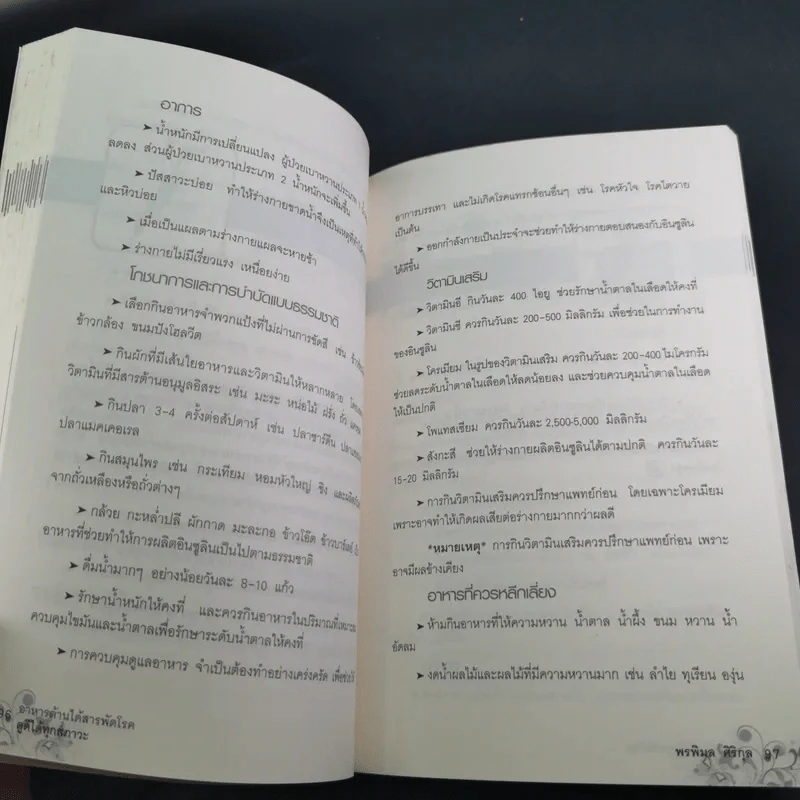 อาการ
➤ น้ำหนักมีการเปลี่ยนแปลง ผู้ป่วยเบาหวานประเภท 1
ลดลง ส่วนผู้ป่วยเบาหวานประเภท 2 น้ำหนักจะเพิ่มขึ้น
➤ ปัสสาวะบ่อย ทำให้ร่างกายขาดน้ำจึงเป็นเหตุที่ทำ
และหิวบ่อย
➤ เมื่อเป็นแผลตามร่างกายแผลจะหายช้า
➤ ร่างกายไม่มีเรี่ยวแรง เหนื่อยง่าย
โภชนาการและการบำบัดแบบธรรมชาติ
➤ เลือกกินอาหารจำพวกแป้งที่ไม่ผ่านการขัดสี เช่น
ข้าวกล้อง ขนมปังโฮลวีต
➤ กินผักที่มีเส้นใยอาหารและวิตามินให้หลากหลาย
วิตามินที่มีสารต้านอนุมูลอิสระ เช่น มะระ หน่อไม้ ฝรั่ง ถั่ว
➤ กินปลา 3-4 ครั้งต่อสัปดาห์ เช่น ปลาซาร์ดีน
ปลาแมคเคอเรล
➤ กินสมุนไพร เช่น กระเทียม หอมหัวใหญ่ ขิง และ
จากถั่วเหลืองหรือถั่วต่างๆ
➤ กล้วย กะหล่ำปลี ผักกาด มะละกอ ข้าวโอ๊ต ข้าวบาร์เลย์
อาหารที่ช่วยทำให้การผลิตอินซูลินเป็นไปตามธรรมชาติ
➤ ดื่มน้ำมากๆ อย่างน้อยวันละ 8-10 แก้ว
➤ รักษาน้ำหนักให้คงที่ และควรกินอาหารในปริมาณที่เหมาะสม
ควบคุมไขมันและน้ำตาลเพื่อรักษาระดับน้ำตาลให้คงที่
➤ การควบคุมดูแลอาหาร จำเป็นต้องทำอย่างเคร่งครัด
อาหารต้านได้สารพัดโรค
สู้ดีได้ทุกสภาวะ
อาการบรรเทา และไม่เกิดโรคแทรกซ้อนอื่นๆ เช่น โรคหัวใจ โรคไตวาย
เป็นต้น
➤ ออกกำลังกายเป็นประจำจะช่วยทำให้ร่างกายตอบสนองกับอินซูลิน
ได้ดีขึ้น
วิตามินเสริม
➤ วิตามินอี กินวันละ 400 ไอยู ช่วยรักษาน้ำตาลในเลือดให้คงที่
➤ วิตามินซี ควรกินวันละ 200-500 มิลลิกรัม เพื่อช่วยในการทำงาน
ของอินซูลิน
➤ โครเมียม ในรูปของวิตามินเสริม ควรกินวันละ 200-400 ไมโครกรัม
ช่วยลดระดับน้ำตาลในเลือดให้ลดน้อยลง และช่วยควบคุมน้ำตาลในเลือด
ให้เป็นปกติ
➤ โพแทสเซียม ควรกินวันละ 2,500-5,000 มิลลิกรัม
➤ สังกะสี ช่วยให้ร่างกายผลิตอินซูลินได้ตามปกติ ควรกินวันละ
15-20 มิลลิกรัม
➤ การกินวิตามินเสริมควรปรึกษาแพทย์ก่อน โดยเฉพาะโครเมียม
เพราะอาจทำให้เกิดผลเสียต่อร่างกายมากกว่าผลดี
*หมายเหตุ* การกินวิตามินเสริมควรปรึกษาแพทย์ก่อน เพราะ
อาจมีผลข้างเคียง
อาหารที่ควรหลีกเลี่ยง
➤ ห้ามกินอาหารที่ให้ความหวาน น้ำตาล น้ำผึ้ง ขนม หวาน น้ำ
อัดลม
➤ งดน้ำผลไม้และผลไม้ที่มีความหวานมาก เช่น ลำไย ทุเรียน องุ่น
พรพิมล ศิริกุล 97